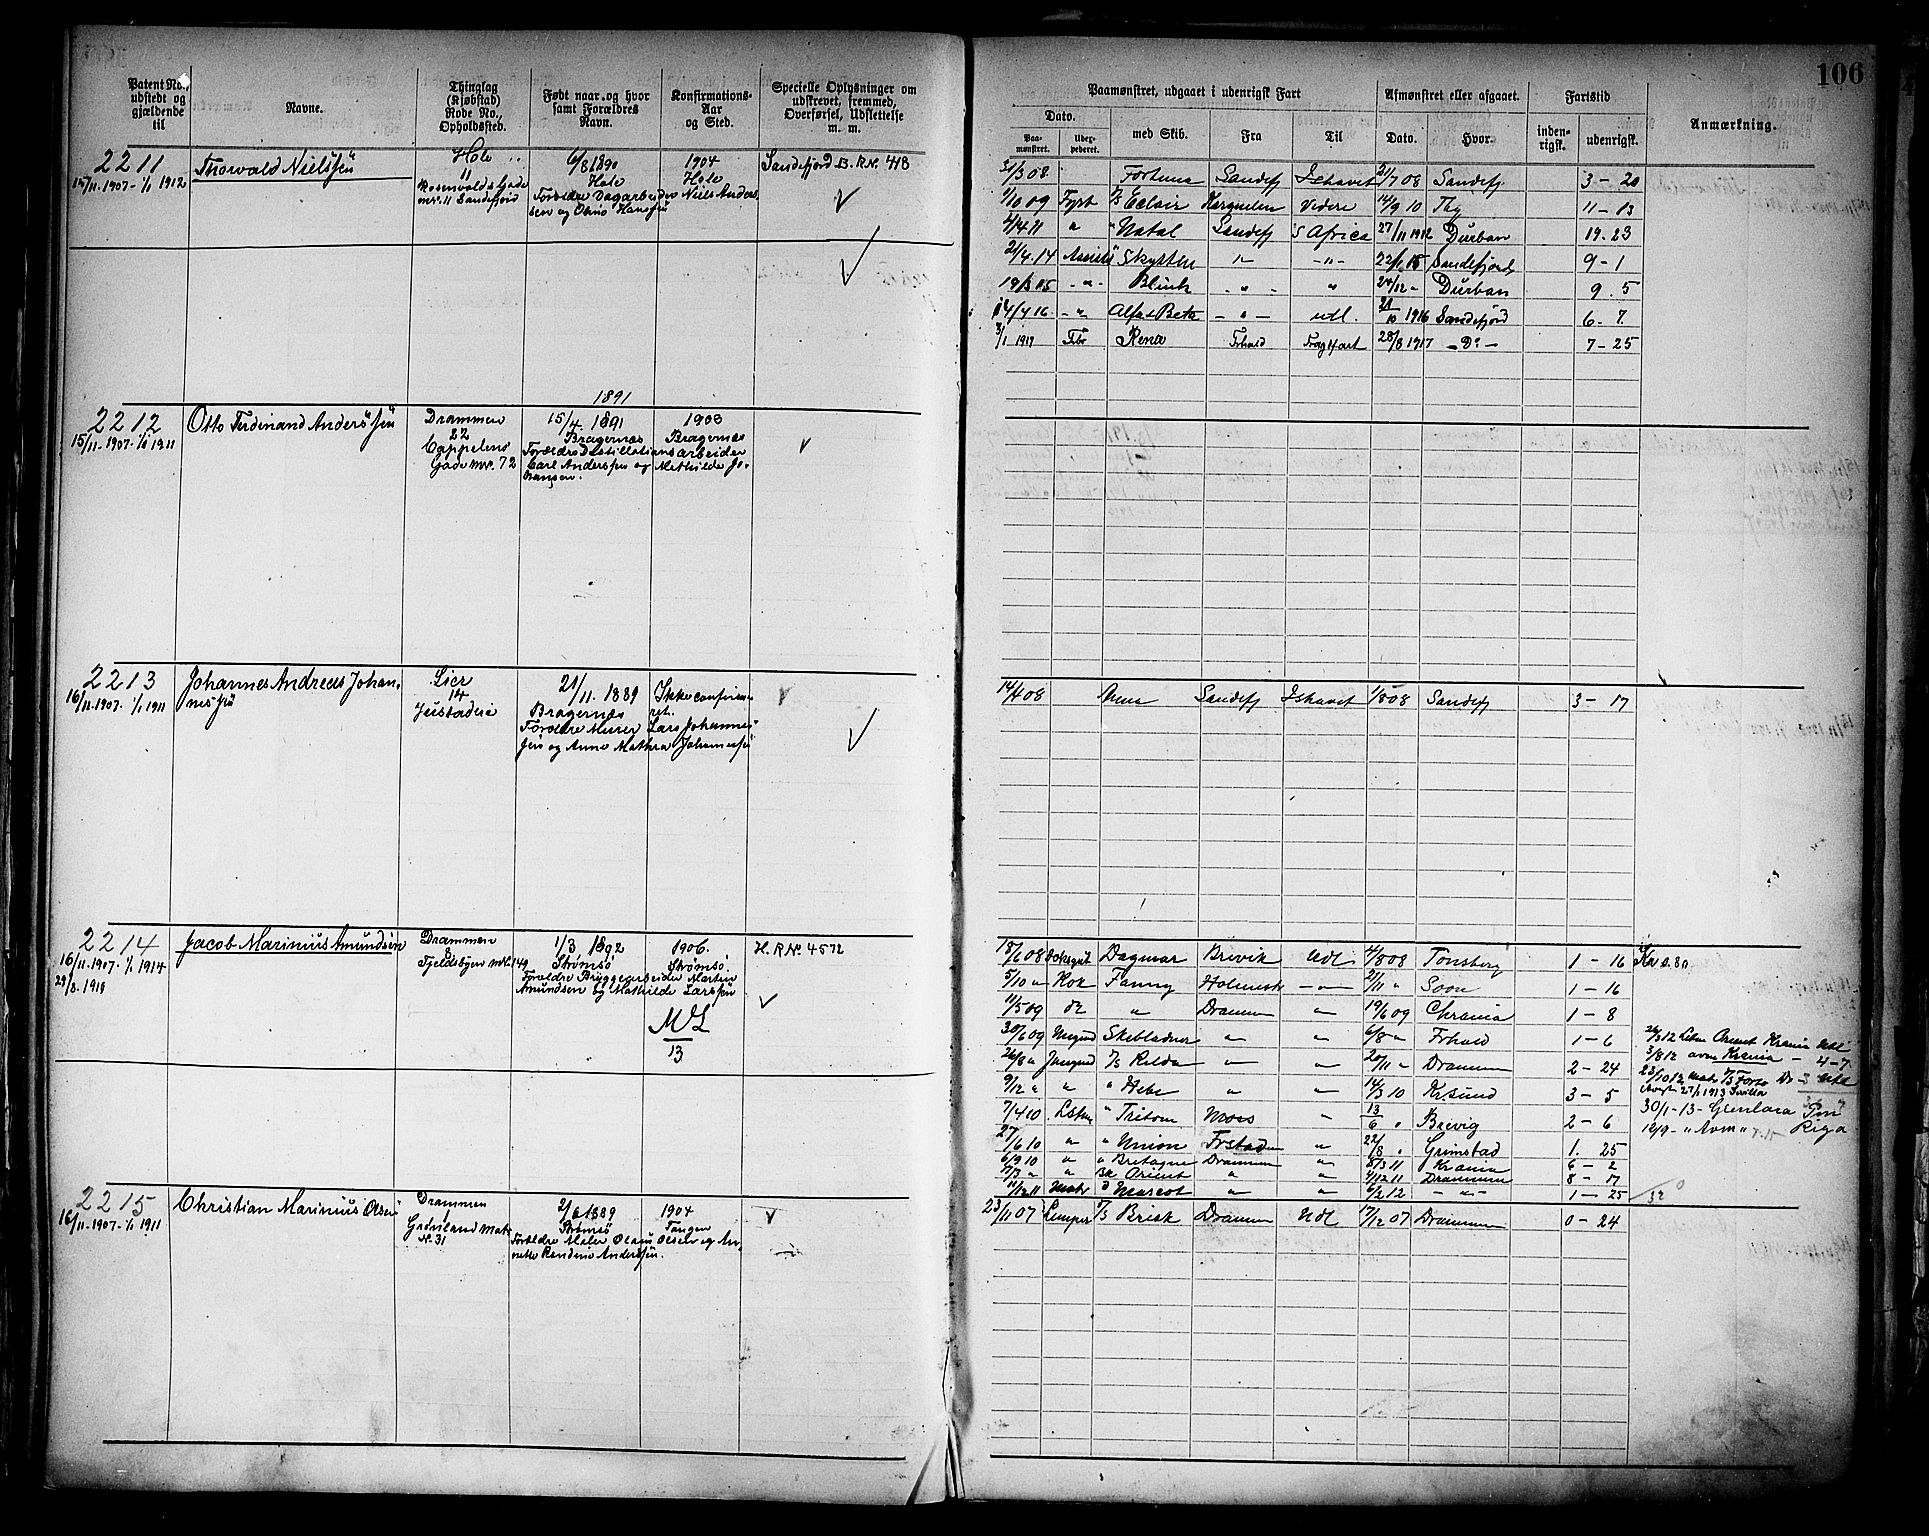 106
Patent No., udstedt og gjældende til
Navne.
Thinglag (Kjøbstad) Rode No., Opholdssteb.
Født naar og hvor samt Forældres Navn.
Konfirmations-Aar og Sted.
Specielle Oplysninger om udskrevet, fremmed, Overførsel, Udslettelse m. m.
Paamønstret, udgaaet i udenrigsk Fart
Afmønstret eller afgaaet.
Fartstid
Anmærkning.
Dato.
Paa-mønstret.
med Skib.
Fra
Til
Dato.
Hvor.
inden-rigsk.
udenrigsk.
2211
15/11-1907-1/1 1912
Thorvald Nielssen
Hole
11
Rosenvolds Gade
nr. 11 Sandefjord
6/8 1890
Hole
Forældre Dagarbeider Niels Anders-
sen og
1904
Hole
Sandefjord B. R.N. 418
21/3 08 Fortuna Sandefj Ishavet 21/7 08 Sandefj. 3-20
1/10 09 Fyrb Eclair Kerguelen Videre 14/9 10 11-13
4/4 11 " " Natal Sandefj S Africa 27/11 1912 Durban 19-23
21/4 14 Skytten " -"- 22/1 15 Sandefjord 9-1
19/3 15 -"- Blink -"- " 24/12 " Durban 9-5
14/4 16 -"- Alfa & Beta -"- udl. 21/10 1916 Sandefjord 6-7
3/1 1917 Rena Frhald Fragtfart 28/8 1917 -Do- 7-25
2212
15/11-1907-1/1 1911
Otto Ferdinand Anderssen
Drammen
22
Cappelens
Gade nr. 72
1891
15/4 1891
Bragernæs
Forældre Destillationsarbeider
Carl Anderssen og Mathilde Jo-
hansen.
1908
Bragernæs
2213
16/11-1907-1/1 1911
Johannes Andreas Johan-
nessen
Lier
14
21/11 1889
Bragernæs
Forældre Murer Lars Johannes-
sen og Anne Mathea Johannessen
Ikke confirme-
ret.
14/4 08 Sandefj Ishavet 1/8 08 Sandefj 3-17
2214
16/11-1907-1/1 1914
29/8-1918
Jacob Marinius Amundsen
Drammen
8
Fjeldsbyen mk. 149
1/3 1892
Strømsø
Forældre Bryggearbeider Martin
Amundsen og Mathilde Larssen
1906.
Strømsø
H. R.No. 4572
13
18/6 08 Dagmar Brevik Udl 4/8 08 Tønsberg 1-16
5/10 " Kok Fanny Holmestr -"- 21/11 " Soon 1-16
11/5 09 " Drammen " 19/6 09 Chrania 1-8
30/6 09 Skibladner " " 6/8 " Frhald 1-6
26/8 " Jungmd Rilda " " 20/11 " Drammen 2-24
9/12 " " " Hebe " " 14/3 10 Krsund 3-5
7/4 10 " Tritom Moss " 13/6 " Brevig 2-6
27/6 10 " " Union Frstad " 22/8 " Grimstad 1-25
6/9 10 " " Bretagne Drammen " 8/3 11 Krania 6-2
7/3 " " Bk Orient " " 4/12 11 Drammen 8-17
11/12 11 Matr Mascot " " 6/2 12 -"- 1-25
26/3 12 Orient Krania
3/8 12 avm Krania - 4-7
23/10 12 Matr Forto
27/1 1913 Sevilla
30/1-13-Grenlara
12/9-"Avm"- Riga
2215
16/11-1907-1/1 1911
Christian Marinius Olsen
Drammen
1
Grønland Matr
N. 31
2/6 1889
Strømsø
Forældre Maler Olaus Olsen og An-
nette Anderssen.
1904
Tangen
23/11 07 Brisk Drammen Udl 17/12 07 Drammen 0-24